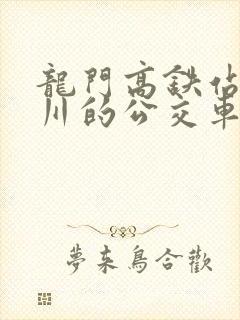 龍門高鉄佔
川的公交車
夢来鳥合歡